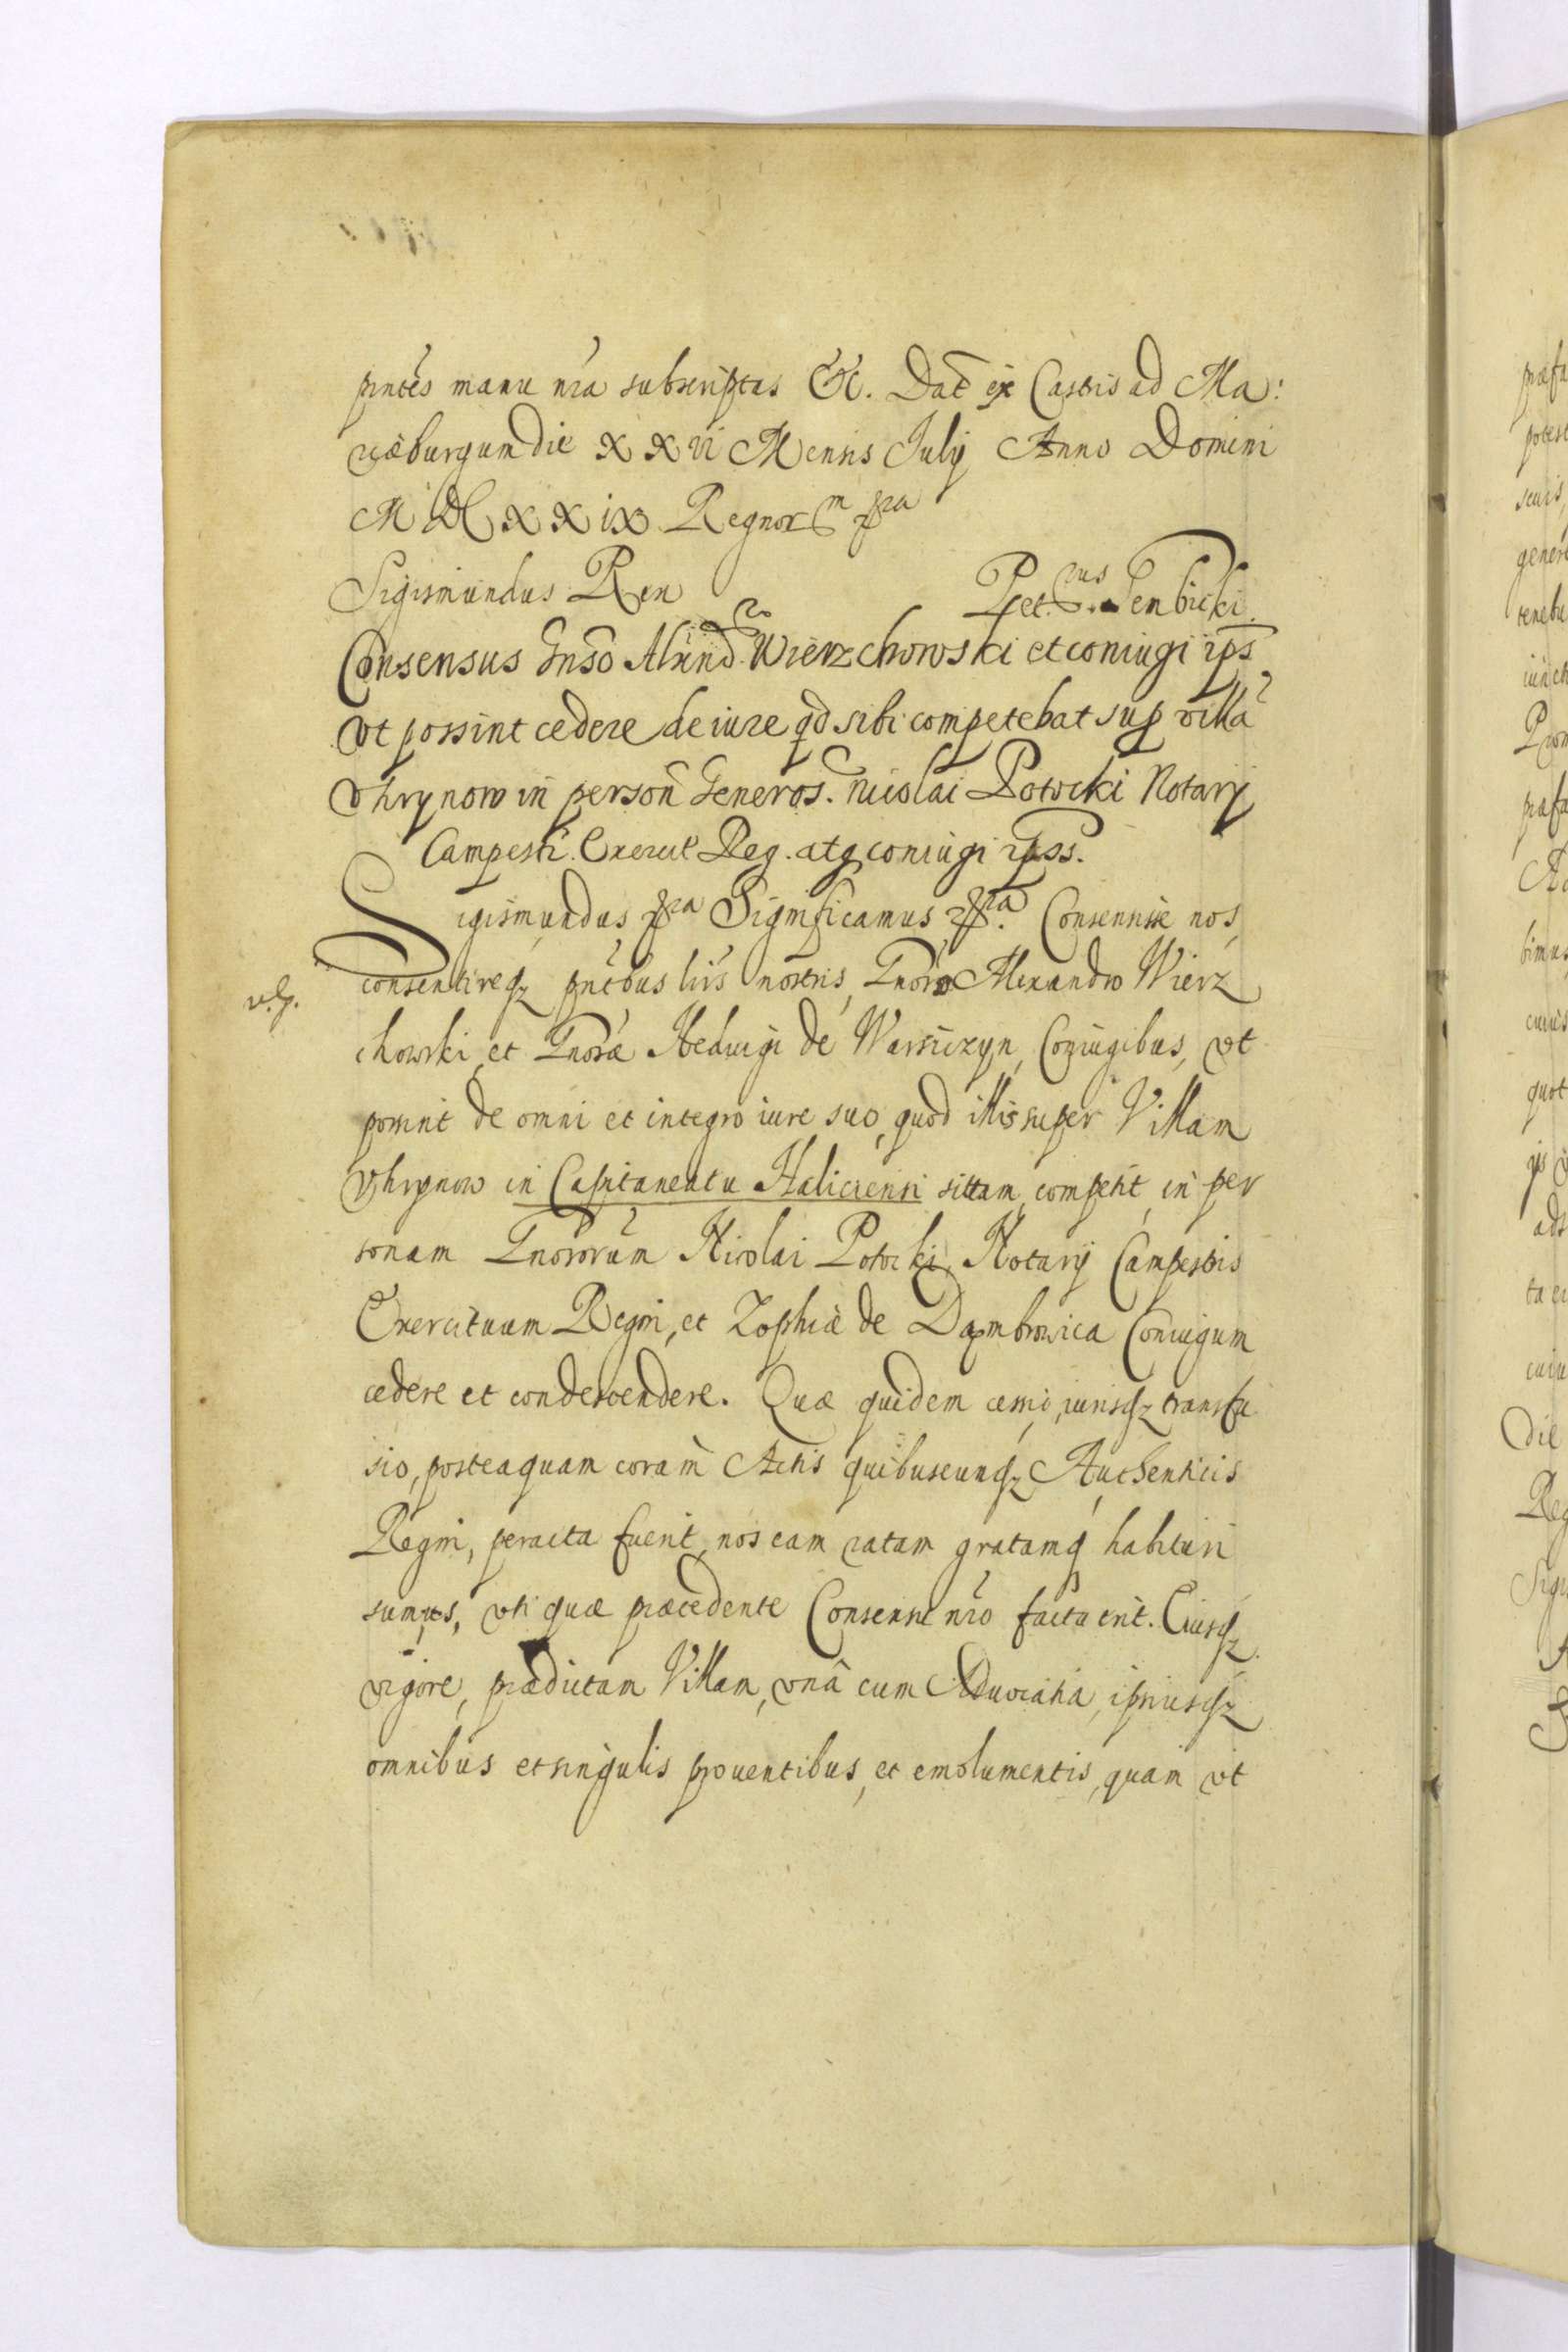 pntes manu nra subscriptas &c. Dat ex Castris ad Ma:
riæburgum die XXVI Mensis Iulij Anno Domini
MDCXXIX Regnorum pra
Sigismundus Rex Petrus Gembicki
Consensus Gnso Alxndro Wierzchowski et coniugi ips
vt possint cedere de iure qd sibi competebat sup villa
Vhrynow in person Generos. Nicolai Potocki Notarij
Campestr. Exercit Reg. atq coniugi ipss.
Sigismundus pra Significamus pra. Consensisse nos,
consentireqz pntbus lris nostris, Gnoso Alexandro Wierz
chowski, et Gnosæ Hedwigi de Warsiczyn, Coniugibus, vt
possint de omni et integro iure suo, quod illis super Villam
Vhrynow in Capitaneatu Haliciensi sittam, competit, in per
sonam Gnosorum Nicolai Potocki, Notarij Campestris
Exercituum Regni, et Zophiæ de Dąmbrowica Coniugum
cedere et condescendere. Quæ quidem cessio, iurisqz transfu
sio, posteaquam coram Actis quibuscunqz Authenticis
Regni, peracta fuerit, nos eam ratam gratamq habituri
sumus, vti quæ præcedente Consensu nro facta erit. Cuiusqz
vigore, prædictam Villam, vnâ cum Aduocatia, ipsiusqz
omnibus et singulis prouentibus, et emolumentis, quam vt